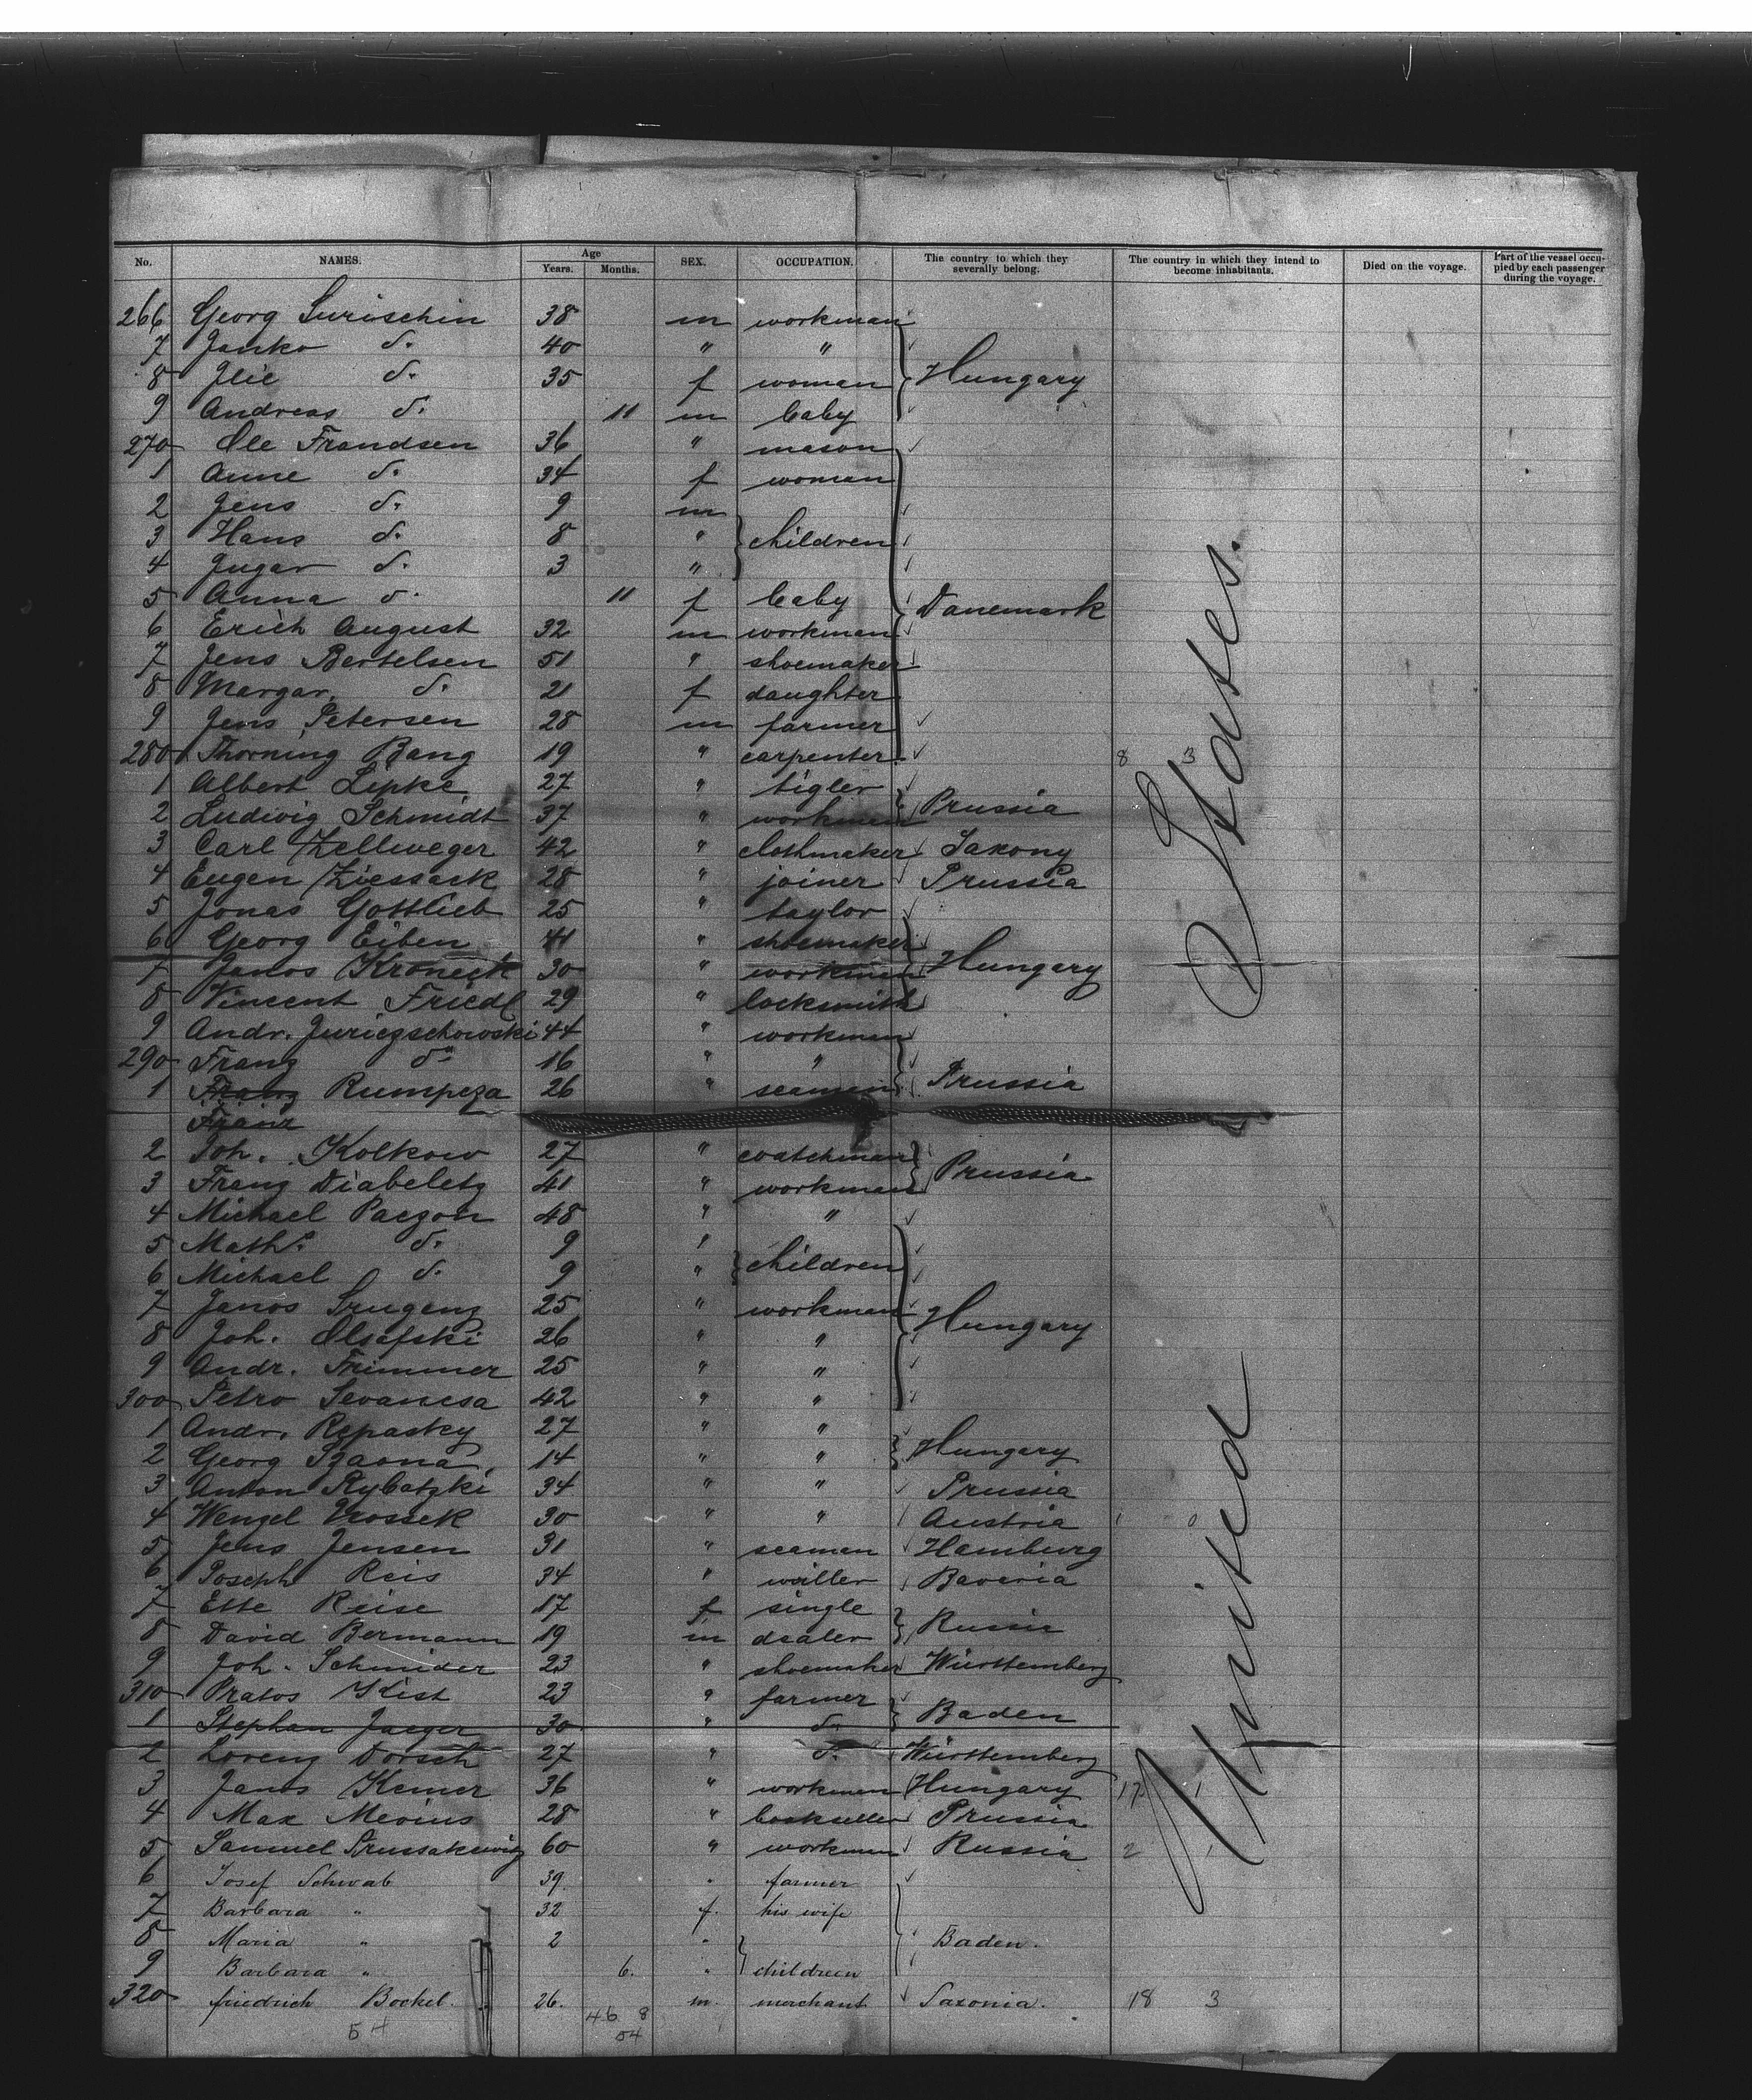 No. NAMES. Age Years. Months. SEX. OCCUPATION. The country to which they severally belong. The country in which they intend to become inhabitants. Died on the voyage. Part of the vessel occupied by each passenger during the voyage.
266 Georg Surischin 38 m workman
7 Janko d. 40 " "
8 Ilie d. 35 f woman Hungary
9 Andreas d. 11 m baby
270 Ole Frandsen 36 " mason
1 Anne d. 34 f woman
2 Jens d. 9 m
3 Hans d. 8 " children
4 Jugar d. 3 "
5 Anna d. 11 f baby Danemark
6 Erich August 32 m workman
7 Jens Bertelsen 51 " shoemaker
8 Margar. d. 21 f daughter
9 Jens Petersen 28 m farmer
280 Thorning Bang 19 " carpenter 8 3
1 Albert Lipke 27 " tigler
2 Ludwig Schmidt 37 " workmen Prussia
3 Carl Zellweger 42 " clothmaker Saxony
4 Eugen Ziessack 28 " joiner Prussia
5 Jonas Gottlieb 25 " taylor
6 Georg Eiben 41 " shoemaker
7 Janos Kroneck 30 " workman Hungary
8 Vincent Friedl 29 " locksmith
9 Andr. Juriczschowski 44 " workman
290 Franz d. 16 " "
1 Franz Rumpeza 26 " seamen Prussia
Franz
2 Joh. Kolkow 27 " watchman
3 Franz Diabeletz 41 " workmen Prussia
4 Michael Paczon 48 " "
5 Math. d. 9 "
6 Michael d. 9 " children
7 Janos Srugenz 25 " workman Hungary
8 Joh. Olsafski 26 " "
9 Andr. Trimmer 25 " "
300 Petro Sevanesa 42 " "
1 Andr. Repasky 27 " "
2 Georg Szaona 14 " " Hungary
3 Anton Rybatzki 34 " " Prussia
4 Wenzel Vrossek 30 " " Austria 1 0
5 Jens Jensen 31 " seaman Hamburg
6 Joseph Reis 34 " willer Baveria
7 Ette Reise 17 f single
8 David Bermann 19 m dealer Russia
9 Joh. Schnider 23 " shoemaker Württemberg
310 Pratos Kist 23 " farmer
1 Stephan Jaeger 30 " d. Baden
2 Lorenz Dorsch 27 " d. Württemberg
3 Janos Kemer 36 " workmen Hungary 17 1
4 Max Mevius 28 " bookseller Prussia
5 Samuel Prussakewitz 60 " workman Russia 2 1
6 Josef Schwab 39 " farmer
7 Barbara " 32 f. his wife
8 Maria " 2 " Baden.
9 Barbara " 6. " children
320 friedrich Bockel. 26. m. merchant Saxonia. 18 3
54 46 8
54
United States.